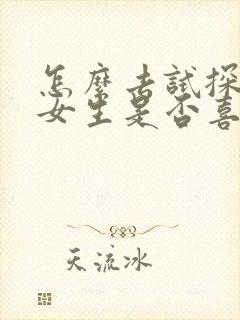 怎麽去試探
女生是否喜
天流冰